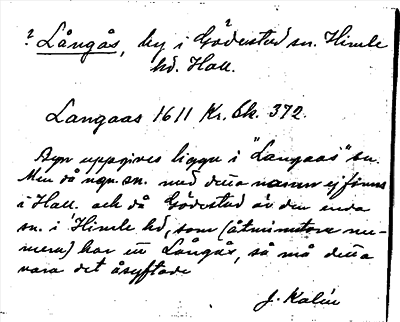 ? Långås, by i Gödestad sn. Himle
hd. Hall.
Langaas 1611 Kr. Sk. 372.
Byn uppgives ligga i "Langaas" sn.
Men då ngn. sn. med detta namn ej finns
i Hall. och då Gödestad är den enda
sn. i Himle hd, som (åtminstone nu-
mera) har ett Långås, så må detta
vara det åsyftade
J. Kalén